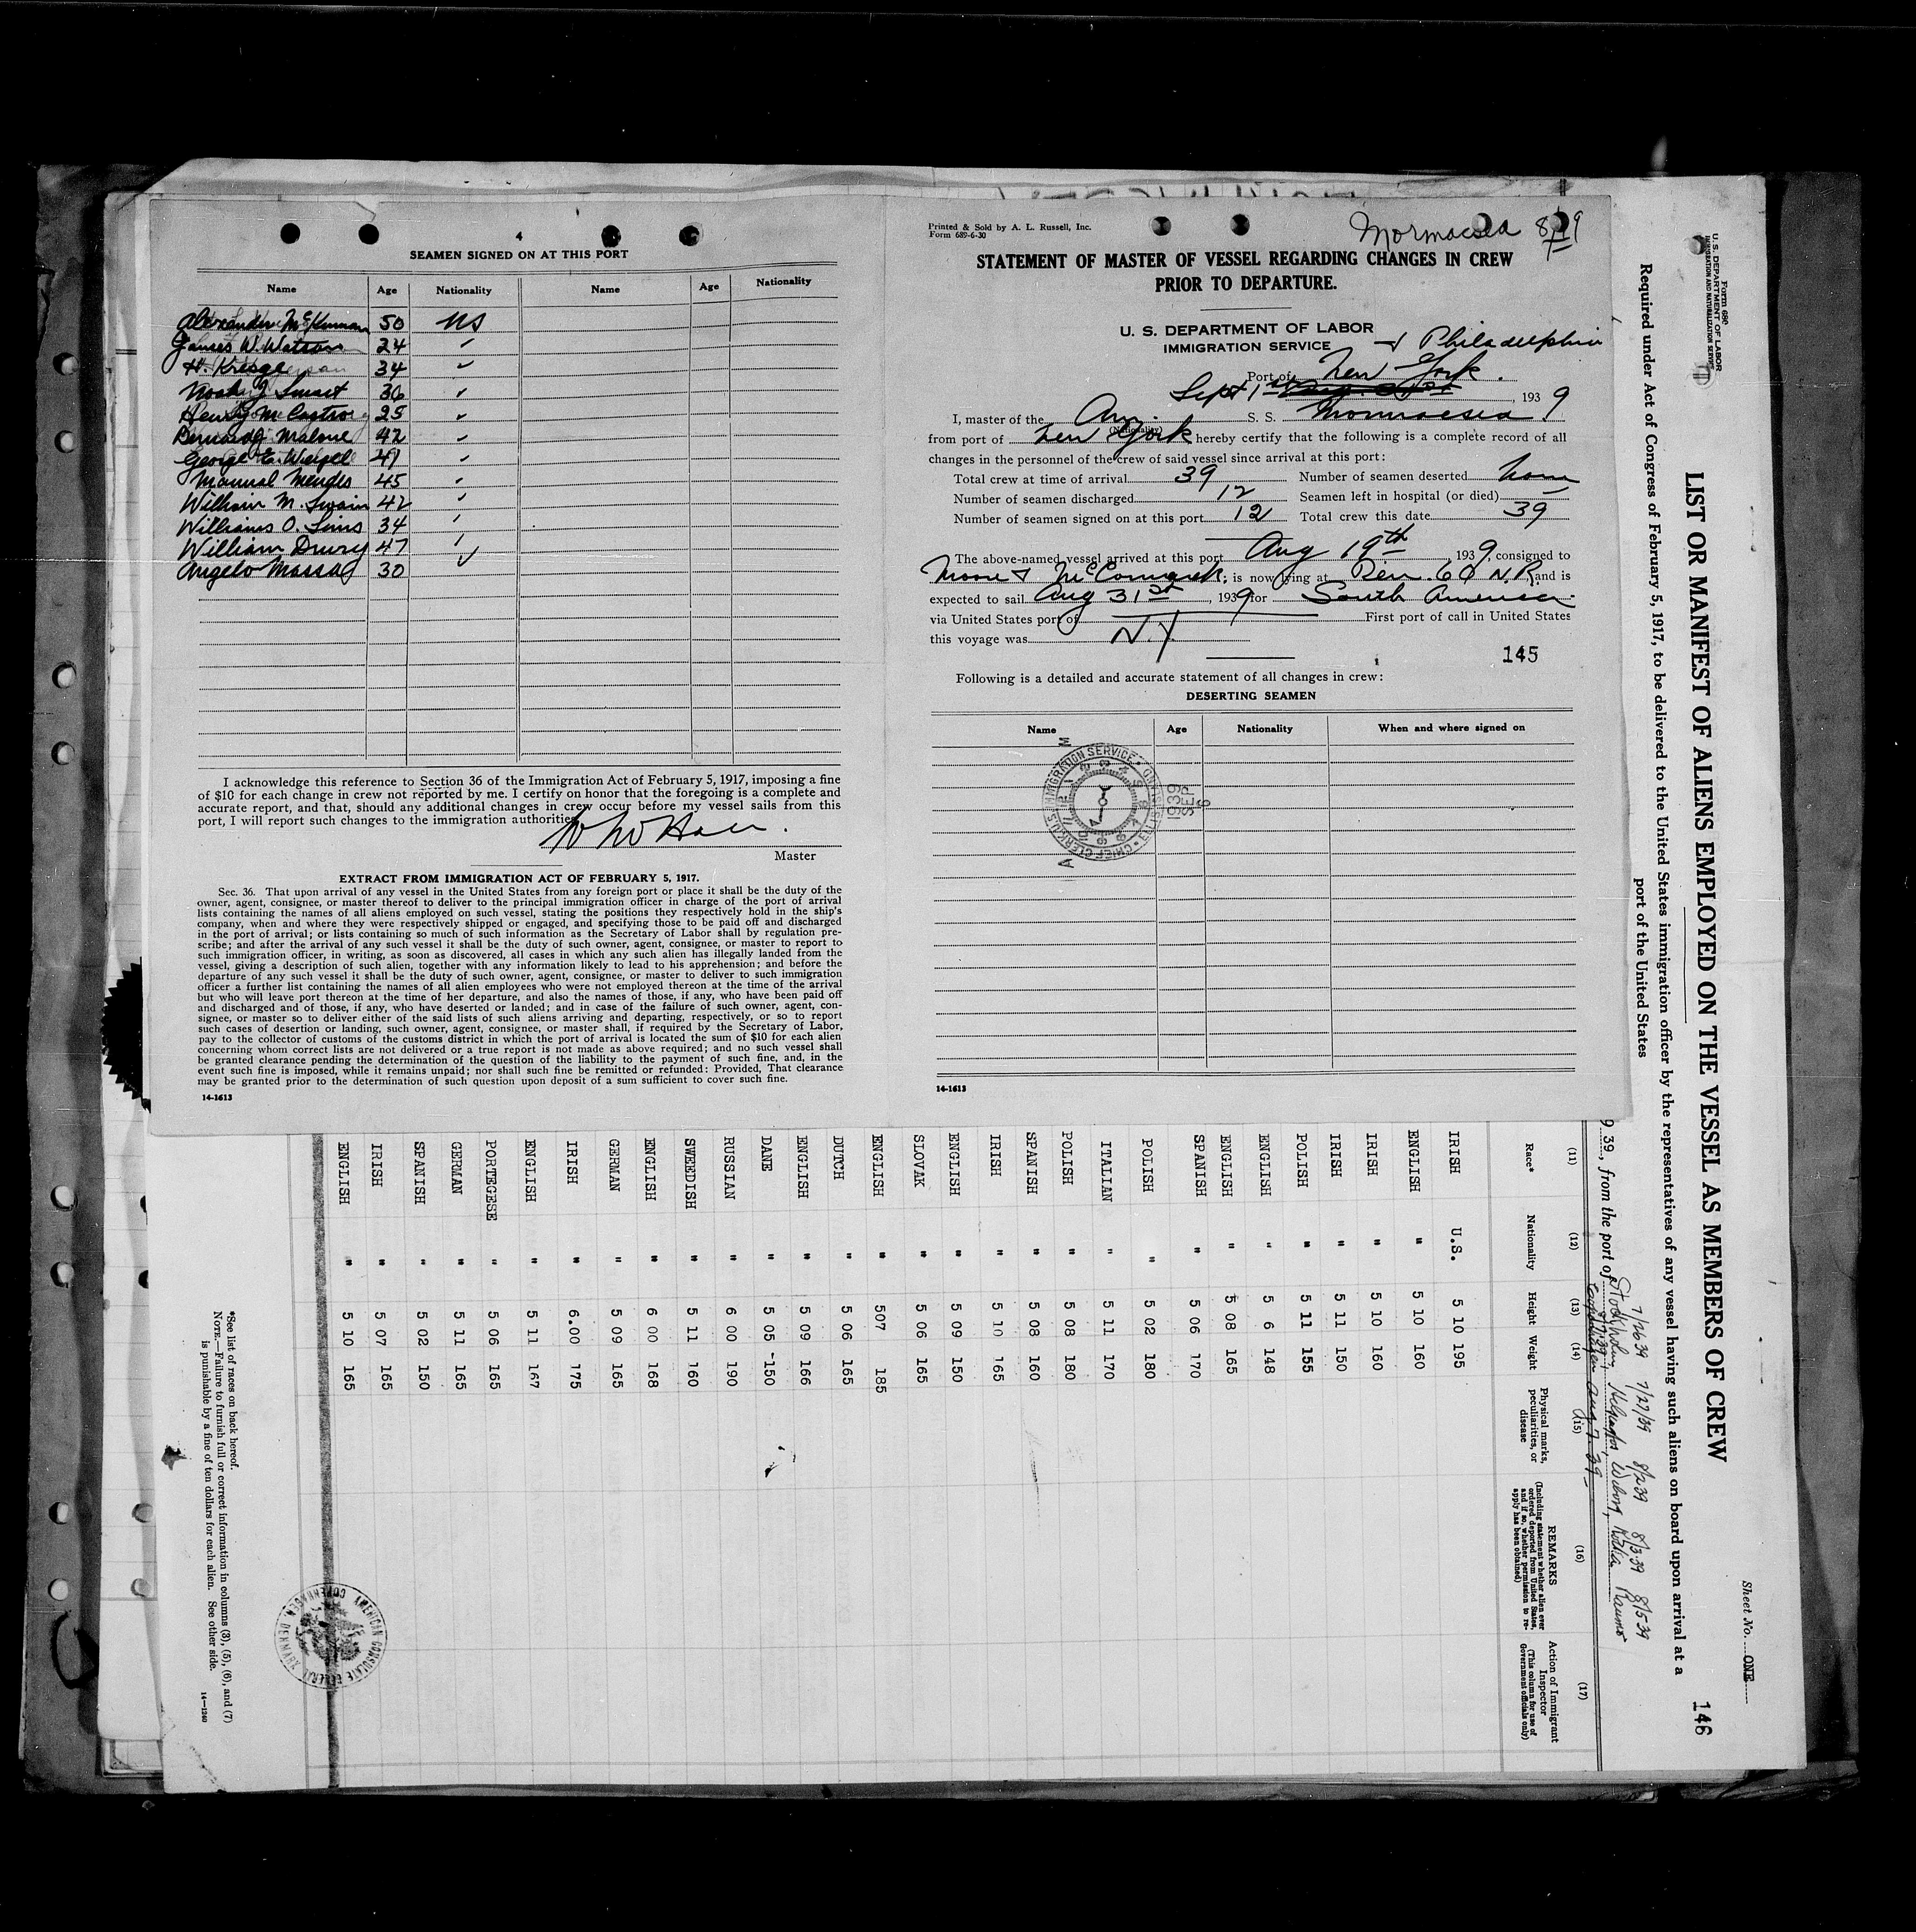 4
SEAMEN SIGNED ON AT THIS PORT
Name Age Nationality Name Age Nationality
Alexander McKinnon 50 US
James W. Watson 24 "
H. Kresge 34 "
Noah J Smart 36 "
Henry M Castro 25 "
Bernard Malone 42 "
George E. Weigel 41 "
Manual Mendes 45 "
William M. Swain 42 "
Williams O. Sims 34 "
William Drury 47 "
Angelo Massa 30 "
I acknowledge this reference to Section 36 of the Immigration Act of February 5, 1917, imposing a fine
of $10 for each change in crew not reported by me. I certify on honor that the foregoing is a complete and
accurate report, and that, should any additional changes in crew occur before my vessel sails from this
port, I will report such changes to the immigration authorities.
Master
EXTRACT FROM IMMIGRATION ACT OF FEBRUARY 5, 1917.
Sec. 36. That upon arrival of any vessel in the United States from any foreign port or place it shall be the duty of the
owner, agent, consignee, or master thereof to deliver to the principal immigration officer in charge of the port of arrival
lists containing the names of all aliens employed on such vessel, stating the positions they respectively hold in the ship's
company, when and where they were respectively shipped or engaged, and specifying those to be paid off and discharged
in the port of arrival; or lists containing so much of such information as the Secretary of Labor shall by regulation pre-
scribe; and after the arrival of any such vessel it shall be the duty of such owner, agent, consignee, or master to report to
such immigration officer, in writing, as soon as discovered, all cases in which any such alien has illegally landed from the
vessel, giving a description of such alien, together with any information likely to lead to his apprehension; and before the
departure of any such vessel it shall be the duty of such owner, agent, consignee, or master to deliver to such immigration
officer a further list containing the names of all alien employees who were not employed thereon at the time of the arrival
but who will leave port thereon at the time of her departure, and also the names of those, if any, who have been paid off
and discharged and of those, if any, who have deserted or landed; and in case of the failure of such owner, agent, con-
signee, or master so to deliver either of the said lists of such aliens arriving and departing, respectively, or so to report
such cases of desertion or landing, such owner, agent, consignee, or master shall, if required by the Secretary of Labor,
pay to the collector of customs of the customs district in which the port of arrival is located the sum of $10 for each alien
concerning whom correct lists are not delivered or a true report is not made as above required; and no such vessel shall
be granted clearance pending the determination of the question of the liability to the payment of such fine, and, in the
event such fine is imposed, while it remains unpaid; nor shall such fine be remitted or refunded: Provided, That clearance
may be granted prior to the determination of such question upon deposit of a sum sufficient to cover such fine.
14-1613
Printed & Sold by A. L. Russell, Inc.
Form 689-6-30
Mormacsea 8/19
STATEMENT OF MASTER OF VESSEL REGARDING CHANGES IN CREW
PRIOR TO DEPARTURE.
U. S. DEPARTMENT OF LABOR
IMMIGRATION SERVICE
Philadelphia
Port of New York.
Sept 1st, 1939
I, master of the Am. S. S. Mormacsea
(Nationality)
from port of New York hereby certify that the following is a complete record of all
changes in the personnel of the crew of said vessel since arrival at this port:
Total crew at time of arrival 39 Number of seamen deserted none
Number of seamen discharged 12 Seamen left in hospital (or died) —
Number of seamen signed on at this port 12 Total crew this date 39
The above-named vessel arrived at this port Aug 19th, 1939, consigned to
Moore & McCormack; is now lying at Pier 60 N.R. and is
expected to sail Aug 31st, 1939 for South America
via United States port of — First port of call in United States
this voyage was N.Y.
145
Following is a detailed and accurate statement of all changes in crew:
DESERTING SEAMEN
Name Age Nationality When and where signed on
U.S. IMMIGRATION SERVICE
CHIEF CLERK
1939 SEP 6
14-1613
Form 680
U. S. DEPARTMENT OF LABOR
IMMIGRATION AND NATURALIZATION SERVICE
Sheet No. ONE
146
LIST OR MANIFEST OF ALIENS EMPLOYED ON THE VESSEL AS MEMBERS OF CREW
Required under Act of Congress of February 5, 1917, to be delivered to the United States immigration officer by the representatives of any vessel having such aliens on board upon arrival at a
port of the United States
7/26 39 7/27/39 8/2 39 8/3 39 8/5 39
9 39, from the port of Stockholm, Wiborg, Kotka Raumo
Copenhagen Aug 7-39
(11) (12) (13) (14) (15) (16) (17)
Race* Nationality Height Weight Physical marks, peculiarities, or disease REMARKS (Including statement whether alien ever ordered deported from United States, and if so, whether permission to re-apply has been obtained) Action of Immigrant Inspector (This column for use of Government officials only)
IRISH U.S. 5 10 195
ENGLISH " 5 10 160
IRISH " 5 10 160
IRISH " 5 11 150
POLISH " 5 11 155
ENGLISH " 5 6 148
ENGLISH " 5 08 165
SPANISH " 5 06 170
POLISH " 5 02 180
ITALIAN " 5 11 170
POLISH " 5 08 180
SPANISH " 5 08 160
IRISH " 5 10 165
ENGLISH " 5 09 150
SLOVAK " 5 06 165
ENGLISH " 507 185
DUTCH " 5 06 165
ENGLISH " 5 09 166
DANE " 5 05 -150
RUSSIAN " 6 00 190
SWEEDISH " 5 11 160
ENGLISH " 6 00 168
GERMAN " 5 09 165
IRISH " 6.00 175
ENGLISH " 5 11 167
PORTEGESE " 5 06 165
GERMAN " 5 11 165
SPANISH " 5 02 150
IRISH " 5 07 165
ENGLISH " 5 10 165
AMERICAN CONSULATE GENERAL
COPENHAGEN, DENMARK
*See list of races on back hereof.
NOTE.—Failure to furnish full or correct information in columns (3), (5), (6), and (7)
is punishable by a fine of ten dollars for each alien. See other side.
14—1240